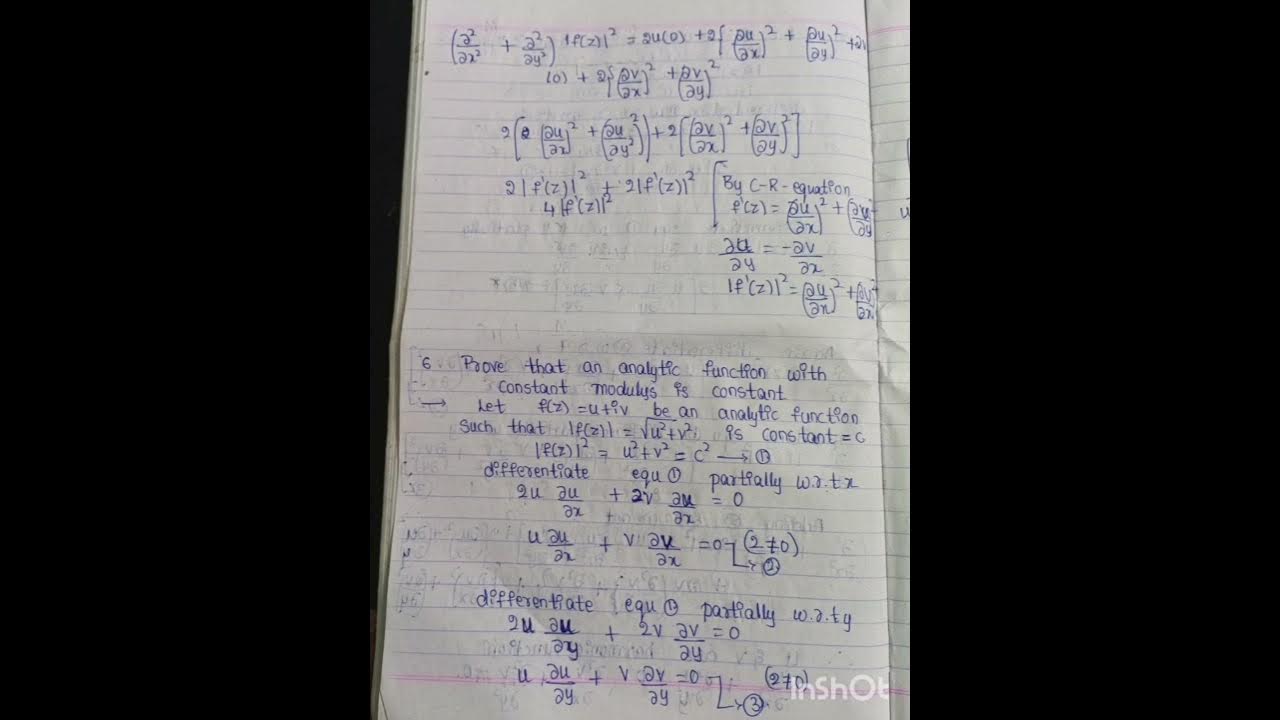 (∂²/∂x² + ∂²/∂y²) |f(z)|² = 2u(0) + 2{(∂u/∂x)² + (∂u/∂y)² + 2v
(0) + 2{(∂v/∂x)² + (∂v/∂y)²
2[(∂u/∂x)² + (∂u/∂y²)²] + 2[(∂v/∂x)² + (∂v/∂y)²]
2|f'(z)|² + 2|f'(z)|² [By C-R-equation
4|f'(z)|² f'(z) = (∂u/∂x)² +
∂u/∂y = -∂v/∂x
|f'(z)|² = (∂u/∂x)² + (∂v/∂x)²
6 Prove that an analytic function with
constant modulys is constant
→ Let f(z) = u+iv be an analytic function
such that |f(z)| = √u²+v² is constant = c
|f(z)|² = u²+v² = c² → ①
differentiate equ ① partially w.r.t x
2u ∂u/∂x + 2v ∂u/∂x = 0
u ∂u/∂x + v ∂v/∂x = 0 (2≠0)
→ ②
differentiate equ ① partially w.r.t y
2u ∂u/∂y + 2v ∂v/∂y = 0
u ∂u/∂y + v ∂v/∂y = 0 (2≠0)
→ ③
InShOt